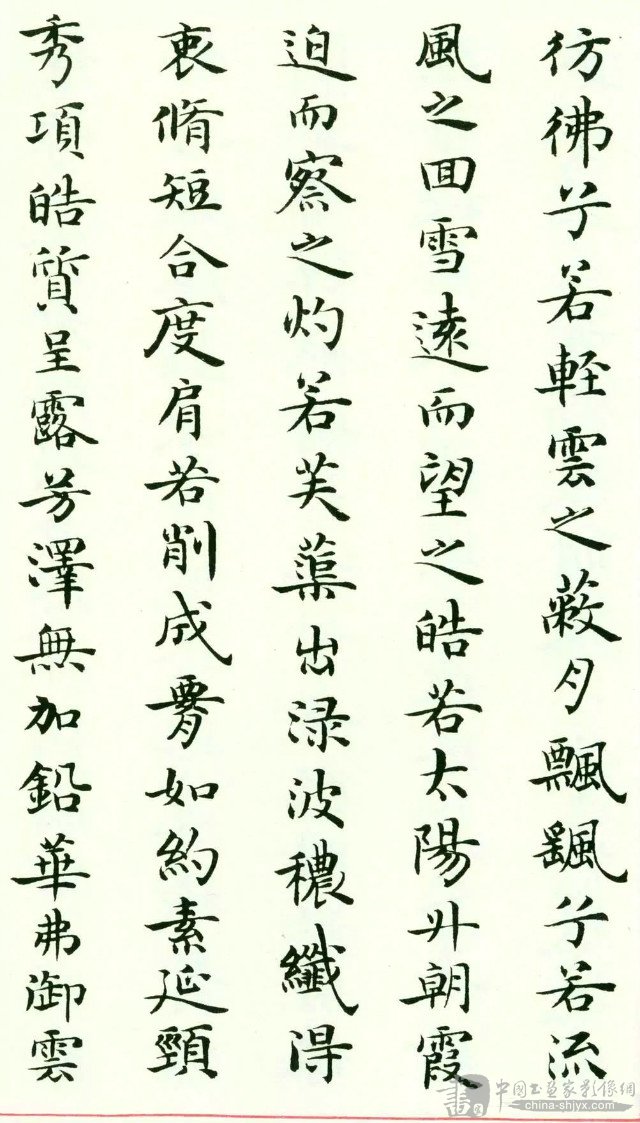 彷彿兮若輕雲之蔽月飄颻兮若流
風之回雪遠而望之皓若太陽升朝霞
迫而察之灼若芙蕖出淥波穠纖得
衷脩短合度肩若削成腰如約素延頸
秀項皓質呈露芳澤無加鉛華弗御雲
書 中國书画家影像網
china-shjyx.com